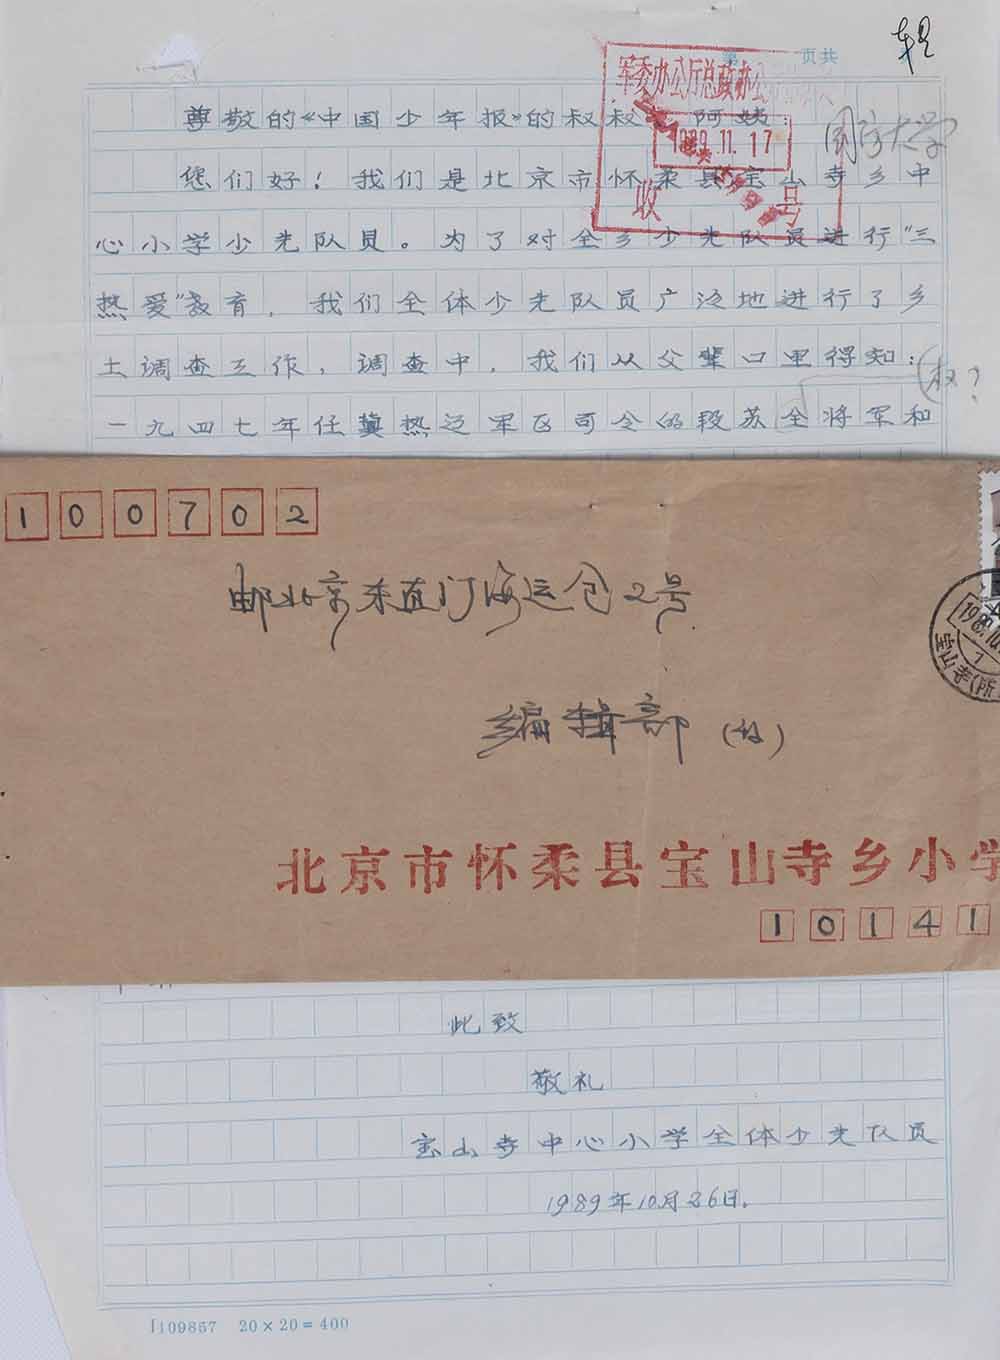 页共
军委办公厅总政办公
1989.11.17
收 号
国防大学
尊敬的《中国少年报》的叔叔、阿姨：
您们好！我们是北京市怀柔县宝山寺乡中
心小学少先队员。为了对全乡少先队员进行“三
热爱”教育，我们全体少先队员广泛地进行了乡
土调查工作，调查中，我们从父辈口里得知：
(权？
一九四七年任冀热辽军区司令的段苏全将军和
100702
邮北京东直门海运仓2号
编辑部（收）
1989.10.
1
宝山寺(所
北京市怀柔县宝山寺乡小学
10141
此致
敬礼
宝山寺中心小学全体少先队员
1989年10月26日.
109857 20×20=400